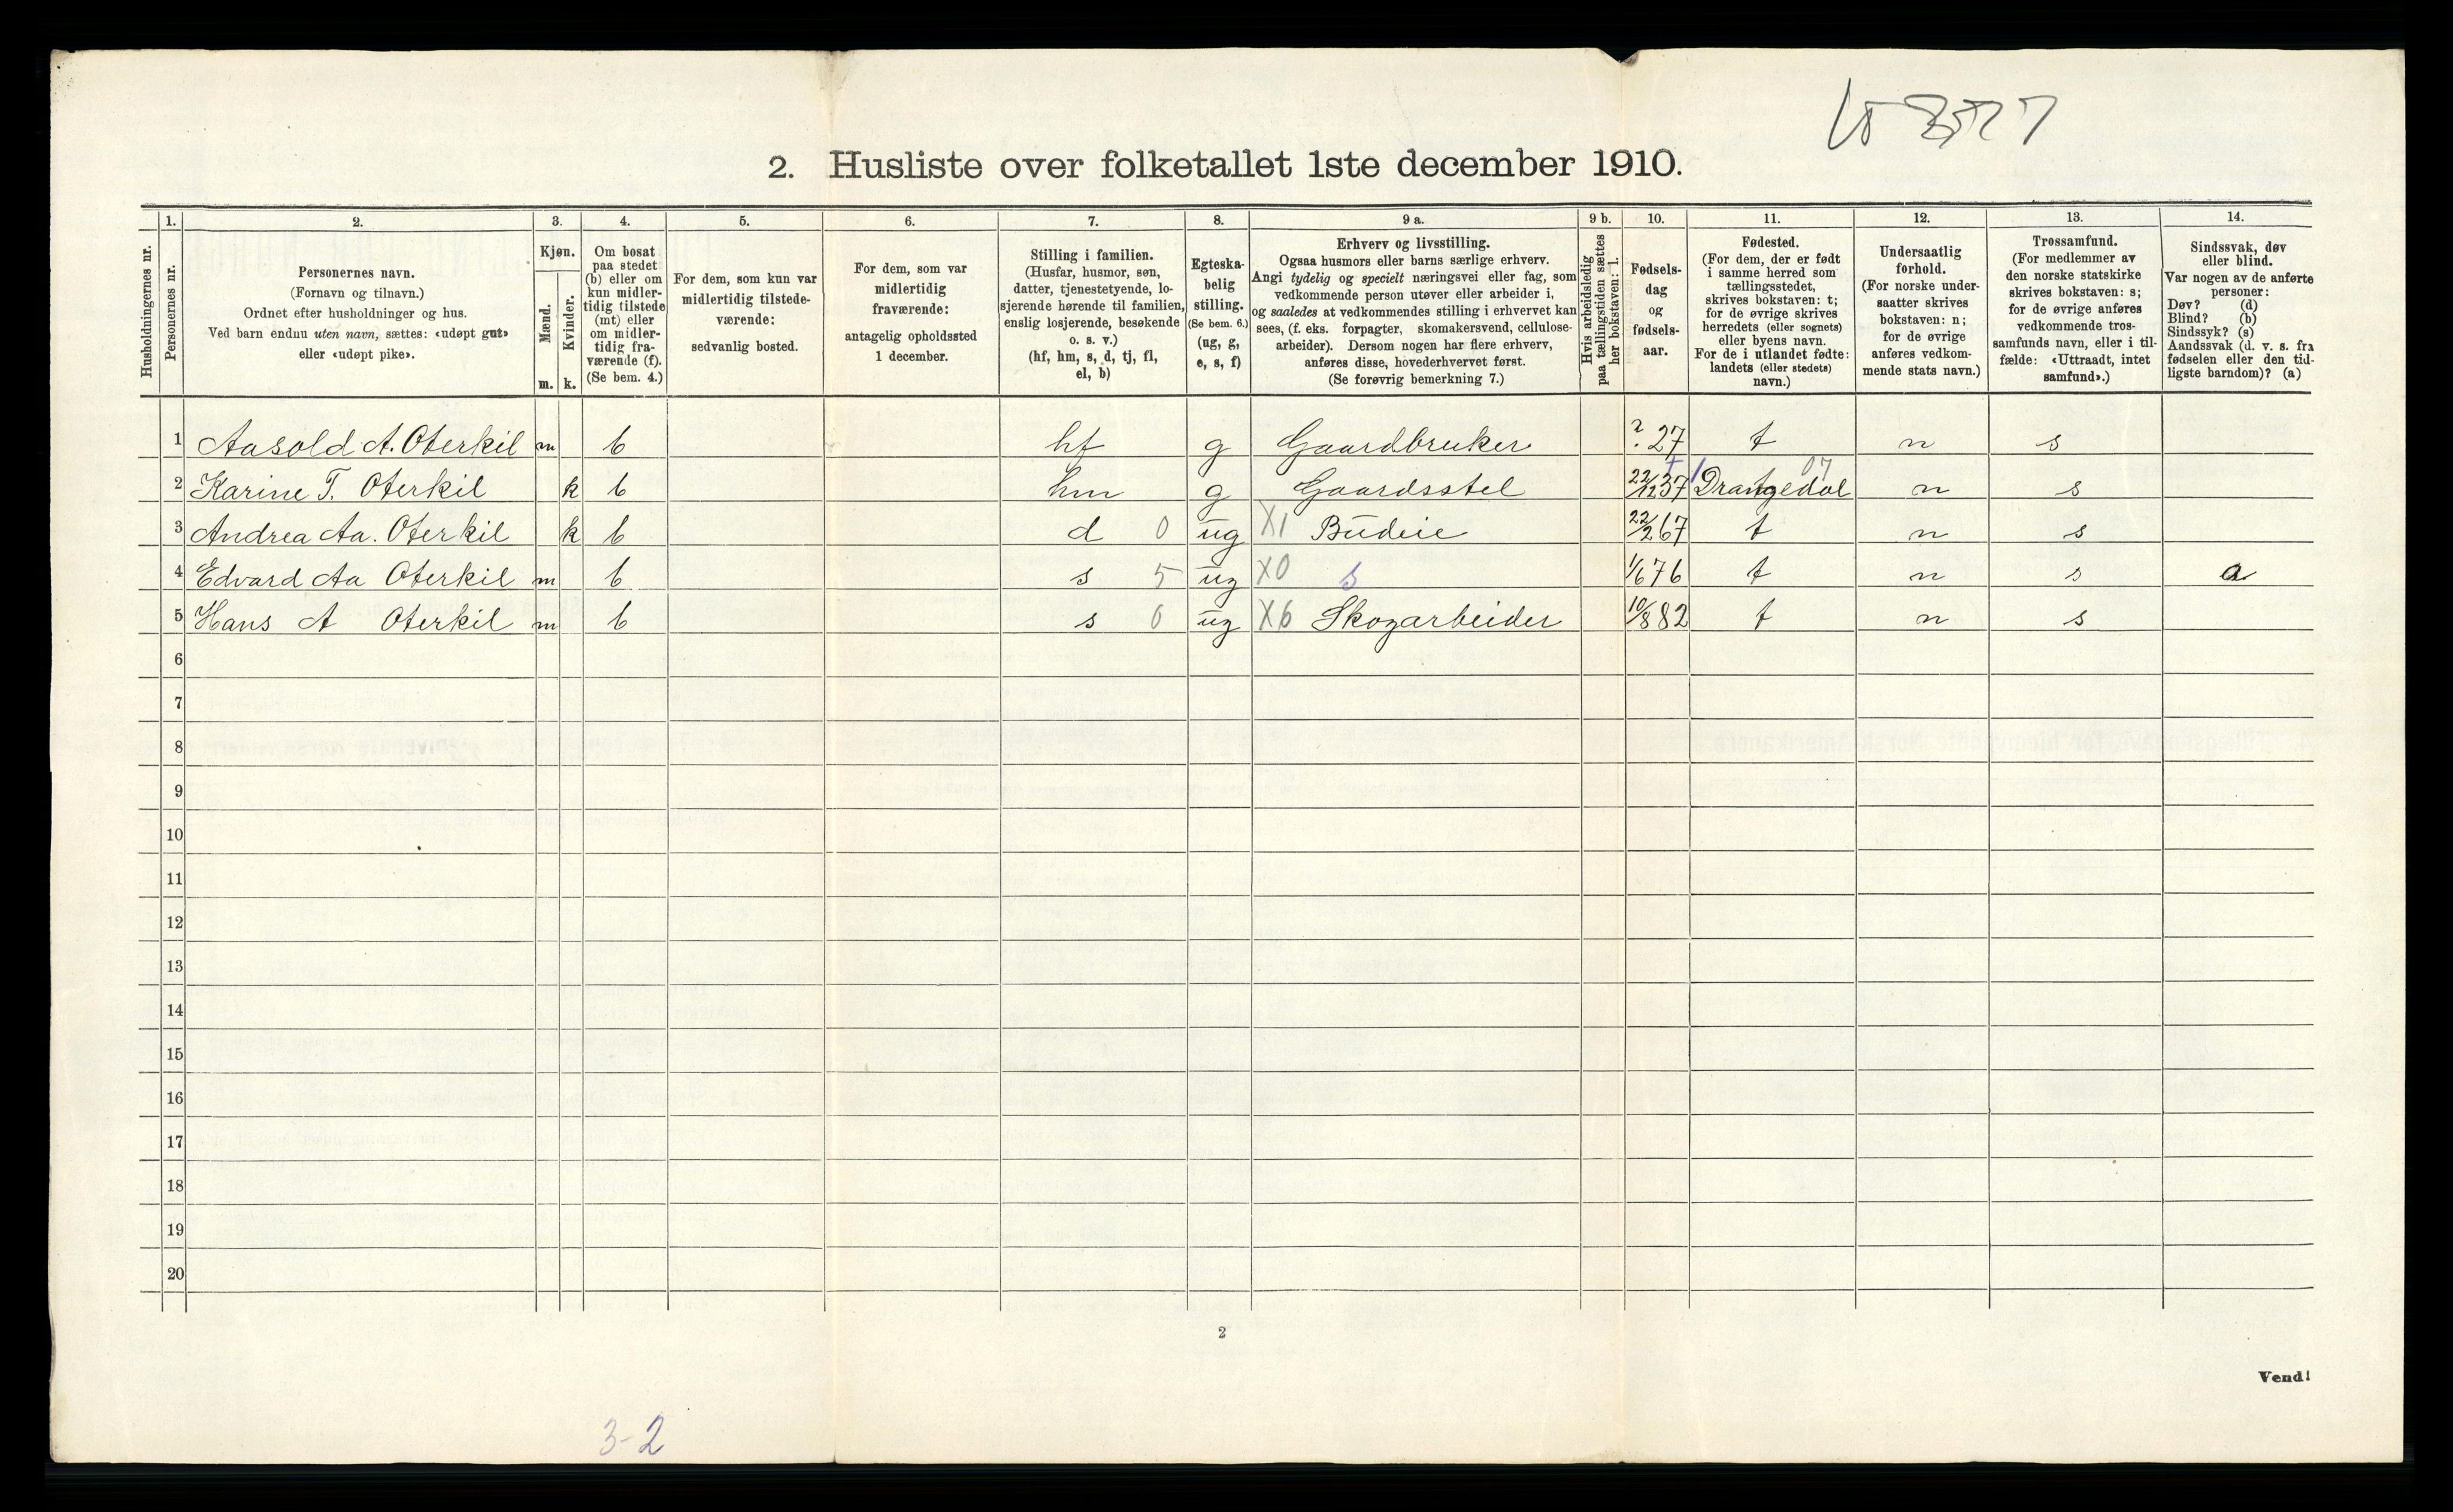 2. Husliste over folketallet 1ste december 1910.
1. 2. 3. 4. 5. 6. 7. 8. 9 a. 9 b. 10. 11. 12. 13. 14.
Husholdningernes nr.
Personernes nr.
Personernes navn.
(Fornavn og tilnavn.)
Ordnet efter husholdninger og hus.
Ved barn endnu uten navn, sættes: «udøpt gut»
eller «udøpt pike».
Kjøn.
Mænd.
m.
Kvinder.
k.
Om bosat
paa stedet
(b) eller om
kun midler-
tidig tilstede
(mt) eller
om midler-
tidig fra-
værende (f).
(Se bem. 4.)
For dem, som kun var
midlertidig tilstede-
værende:
sedvanlig bosted.
For dem, som var
midlertidig
fraværende:
antagelig opholdssted
1 december.
Stilling i familien.
(Husfar, husmor, søn,
datter, tjenestetyende, lo-
sjerende hørende til familien,
enslig losjerende, besøkende
o. s. v.)
(hf, hm, s, d, tj, fl,
el, b)
Egteska-
belig
stilling.
(Se bem. 6.)
(ug, g,
e, s, f)
Erhverv og livsstilling.
Ogsaa husmors eller barns særlige erhverv.
Angi tydelig og specielt næringsvei eller fag, som
vedkommende person utøver eller arbeider i,
og saaledes at vedkommendes stilling i erhvervet kan
sees, (f. eks. forpagter, skomakersvend, cellulose-
arbeider). Dersom nogen har flere erhverv,
anføres disse, hovederhvervet først.
(Se forøvrig bemerkning 7.)
Hvis arbeidsledig
paa tællingstiden sættes
her bokstaven: l.
Fødsels-
dag
og
fødsels-
aar.
Fødested.
(For dem, der er født
i samme herred som
tællingsstedet,
skrives bokstaven: t;
for de øvrige skrives
herredets (eller sognets)
eller byens navn.
For de i utlandet fødte:
landets (eller stedets)
navn.)
Undersaatlig
forhold.
(For norske under-
saatter skrives
bokstaven: n;
for de øvrige
anføres vedkom-
mende stats navn.)
Trossamfund.
(For medlemmer av
den norske statskirke
skrives bokstaven: s;
for de øvrige anføres
vedkommende tros-
samfunds navn, eller i til-
fælde: «Uttraadt, intet
samfund».)
Sindssvak, døv
eller blind.
Var nogen av de anførte
personer:
Døv? (d)
Blind? (b)
Sindssyk? (s)
Aandssvak (d. v. s. fra
fødselen eller den tid-
ligste barndom)? (a)
1 Aasold A. Oterkil m b hf g Gaardbruker ? 27 t n s
2 Karine T. Oterkil k b hm g Gaardsstel 22/12 37 Drangedal 07 n s
3 Andrea Aa. Oterkil k b d 0 ug X1 Budeie 22/2 67 t n s
4 Edvard Aa Oterkil m b s 5 ug X0 s 1/6 76 t n s a
5 Hans A Oterkil m b s 0 ug X6 Skogarbeider 10/8 82 t n s
6
7
8
9
10
11
12
13
14
15
16
17
18
19
20
2
Vend!
3-2